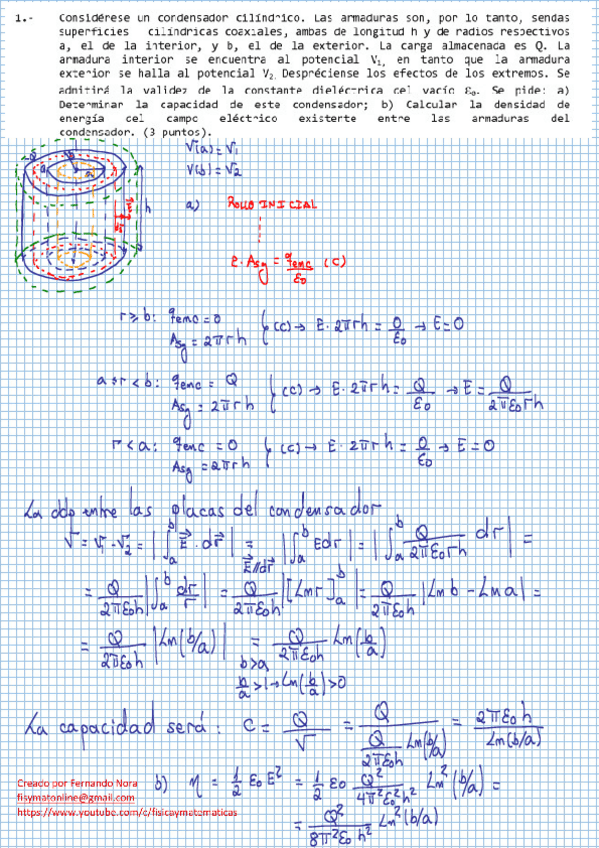 1.- Considérese un condensador cilíndrico. Las armaduras son, por lo tanto, sendas
superficies cilíndricas coaxiales, ambas de longitud h y de radios respectivos
a, el de la interior, y b, el de la exterior. La carga almacenada es Q. La
armadura interior se encuentra al potencial V₁, en tanto que la armadura
exterior se halla al potencial V₂. Despréciense los efectos de los extremos. Se
admitirá la validez de la constante dieléctrica del vacío ε₀. Se pide: a)
Determinar la capacidad de este condensador; b) Calcular la densidad de
energía del campo eléctrico existente entre las armaduras del
condensador. (3 puntos).
V(a) = V₁
V(b) = V₂
h
a) ROLLO INICIAL
E · Asg = qenc/ε₀ (C)
r ≥ b: qenc = 0
Asg = 2πrh
(C) → E · 2πrh = 0/ε₀ → E = 0
a ≤ r < b: qenc = Q
Asg = 2πrh
(C) → E · 2πrh = Q/ε₀ → E = Q/2πε₀rh
r < a: qenc = 0
Asg = 2πrh
(C) → E · 2πrh = 0/ε₀ → E = 0
La ddp entre las placas del condensador
V = V₁ - V₂ = |∫ₐᵇ E⃗ · dr⃗| = |∫ₐᵇ E dr| = |∫ₐᵇ Q/2πε₀rh dr| =
E⃗ ∥ dr⃗
= Q/2πε₀h |∫ₐᵇ dr/r| = Q/2πε₀h |[Ln r]ₐᵇ| = Q/2πε₀h |Ln b - Ln a| =
= Q/2πε₀h |Ln(b/a)| = Q/2πε₀h Ln(b/a)
b > a
b/a > 1 → Ln(b/a) > 0
La capacidad será: C = Q/V = Q/(Q/2πε₀h Ln(b/a)) = 2πε₀h/Ln(b/a)
Creado por Fernando Nora
fisymatonline@gmail.com
https://www.youtube.com/c/fisicaymatematicas
b) η = 1/2 ε₀E² = 1/2 ε₀ Q²/4π²ε₀²h² Ln²(b/a) =
= Q²/8π²ε₀h² Ln²(b/a)